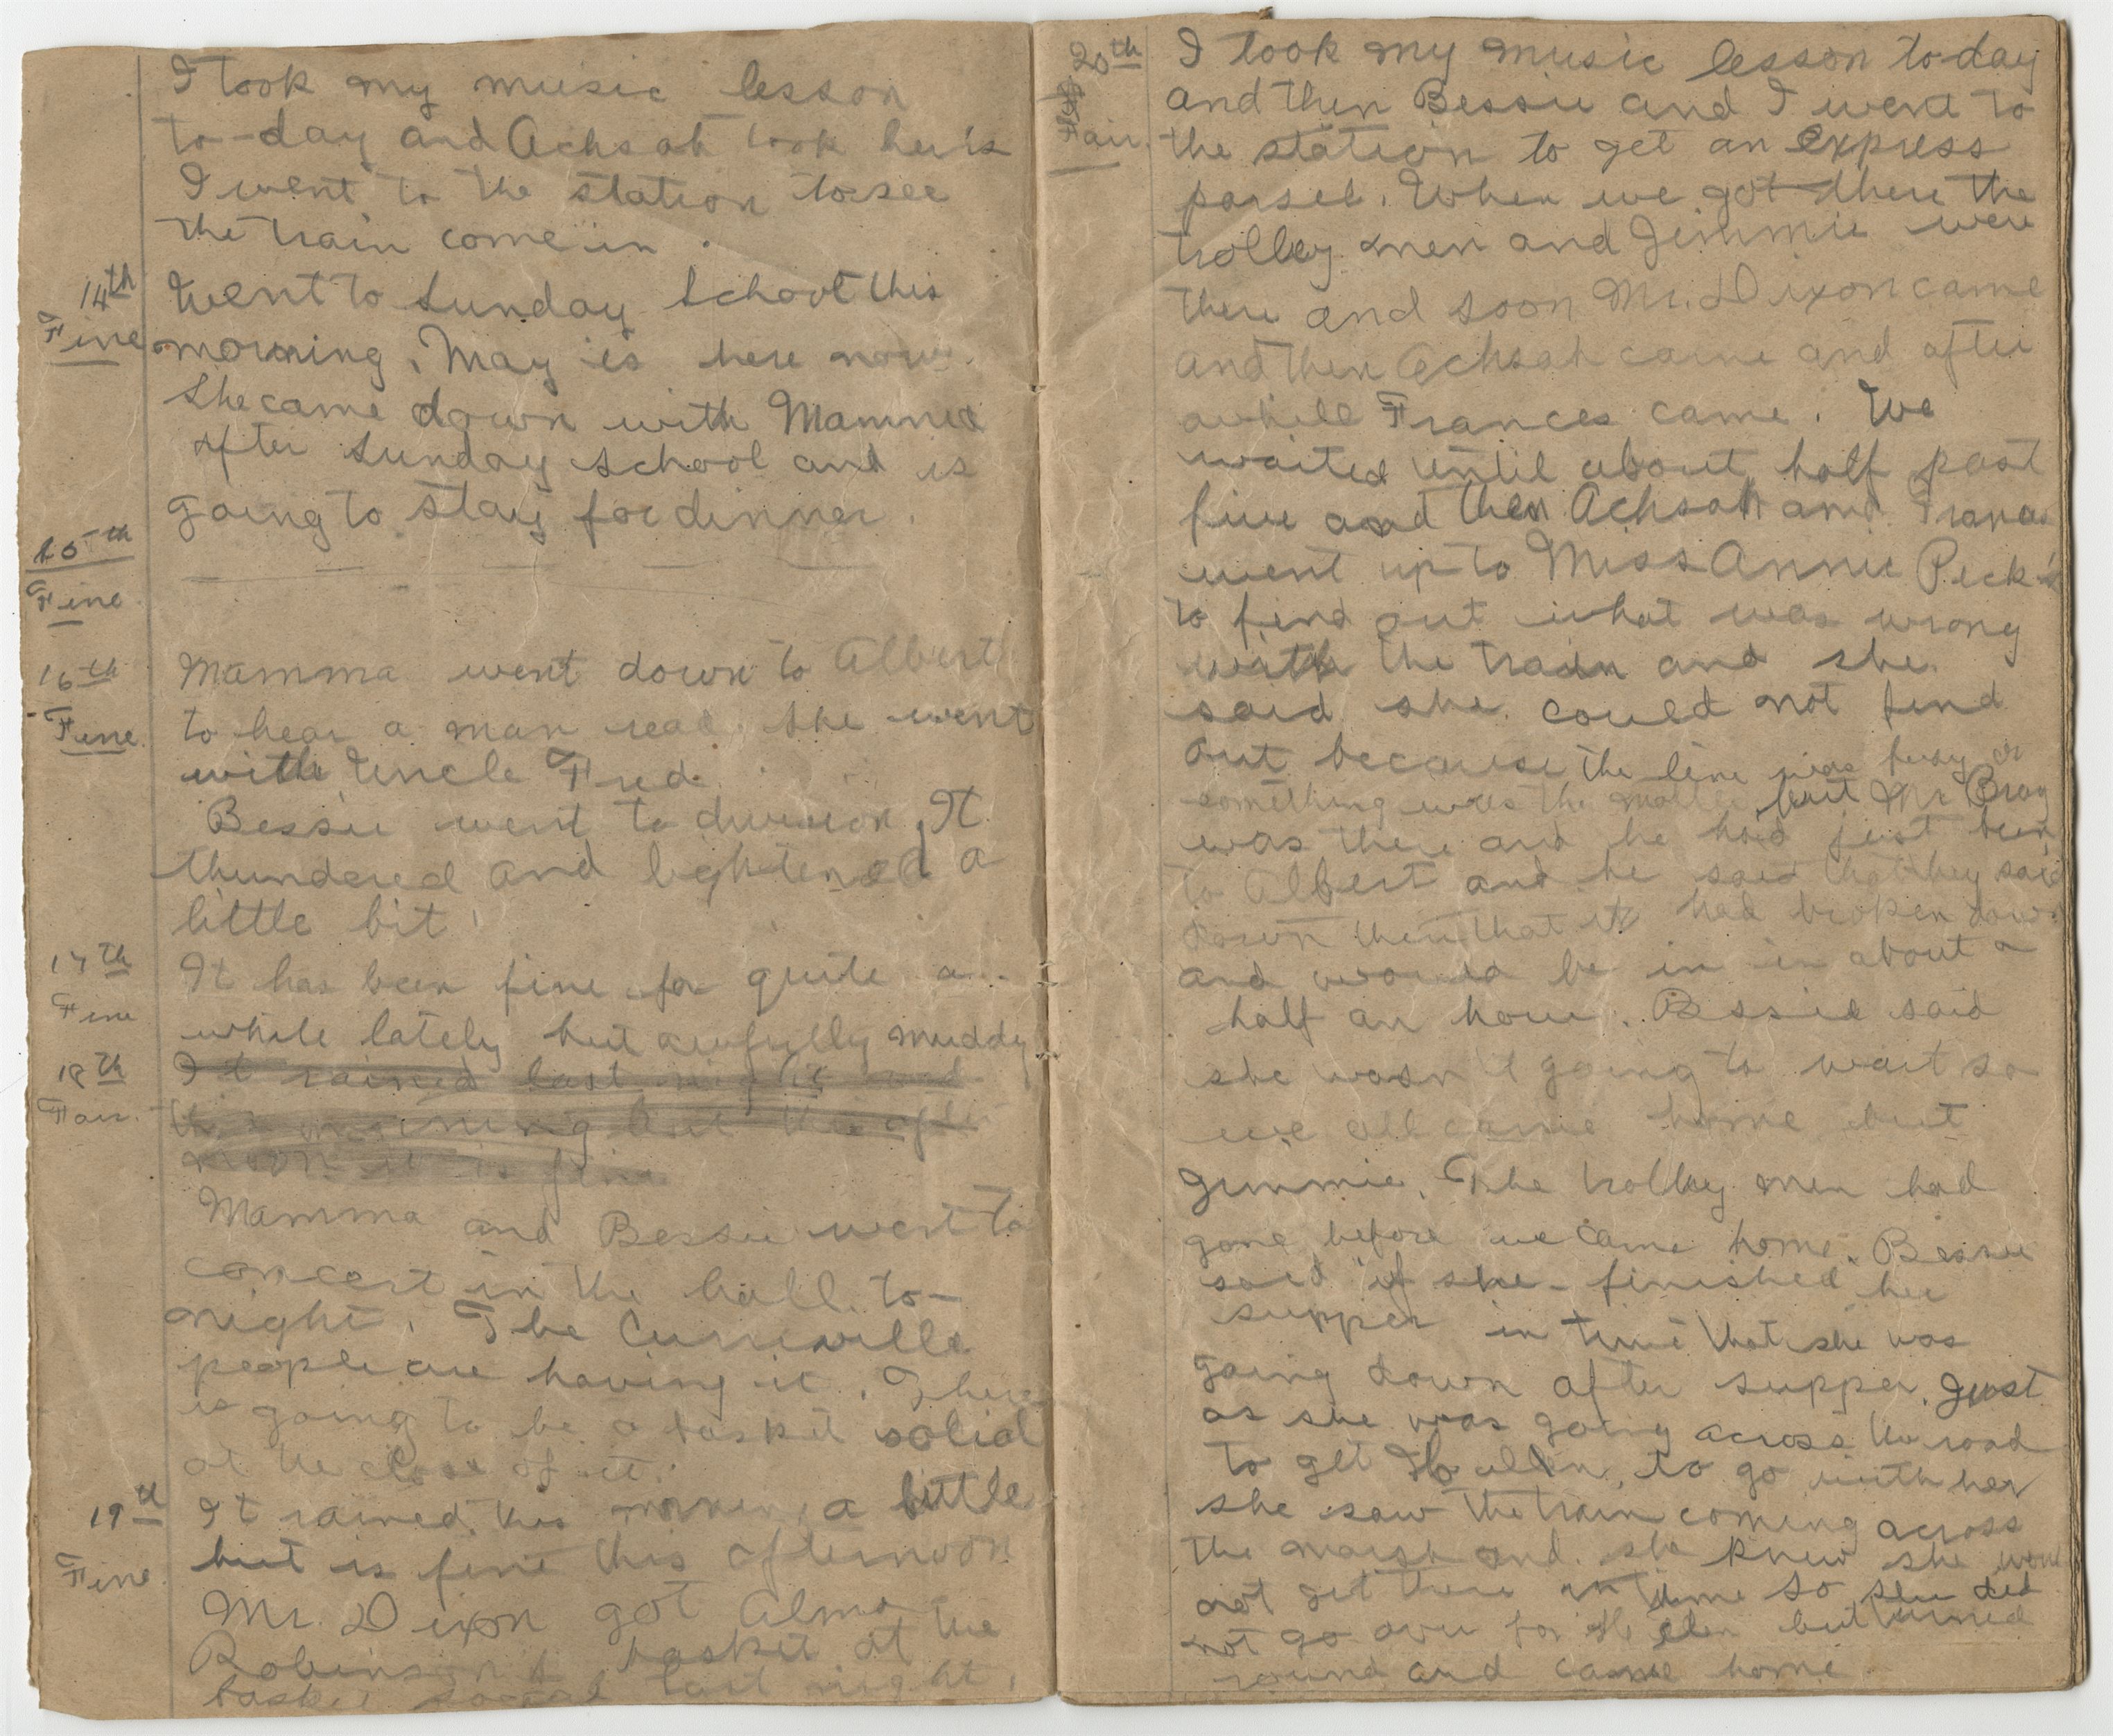 I took my music lesson
to-day and Achsah took her's
I went to the station to see
the train come in.
14th
Fine
Went to Sunday School this
morning. May is here now.
She came down with Mamma
after Sunday School and is
going to stay for dinner.
15th
Fine
16th
Fine
Mamma went down to Albert
to hear a man read, she went
with Uncle Fred.
Bessie went to division. It
thundered and lightened a
little bit.
17th
Fine
It has been fine for quite a
while lately but awfully muddy
18th
Fair.
It rained last night and
this morning but this after
noon it is fine
Mamma and Bessie went to
concert in the hall to-
night. The Curryville
people are having it. There
is going to be a basket solial
at the close of it.
19th
Fine
It rained this morning a little
but is fine this afternoon
Mr. Dixon got Alma
Robinson's basket at the
basket social last night.
20th
Fair.
I took my music lesson to-day
and then Bessie and I went to
the station to get an express
parsel. When we got there the
trolley men and Jimmie were
there and soon Mr. Dixon came
and then Achsah came and after
awhile Frances came. We
waited until about half past
five and then Achsah and Frances
went up to Miss Annie Peck's
to find out what was wrong
with the train and she
said she could not find
out because the line was busy or
something was the matter but Mr Bray
was there and he had just been
to Albert and he said that they said
down there that it had broken down
and would be in in about a
half an hour. Bessie said
she wasn't going to wait so
we all came home but
Jimmie. The trolley men had
gone before we came home. Bessie
said if she finished her
supper in time that she was
going down after supper. Just
as she was going across the road
to get Hellen, to go with her
she saw the train coming across
the marsh and she knew she would
not get there in time so she did
not go over for Hellen but turned
round and came home